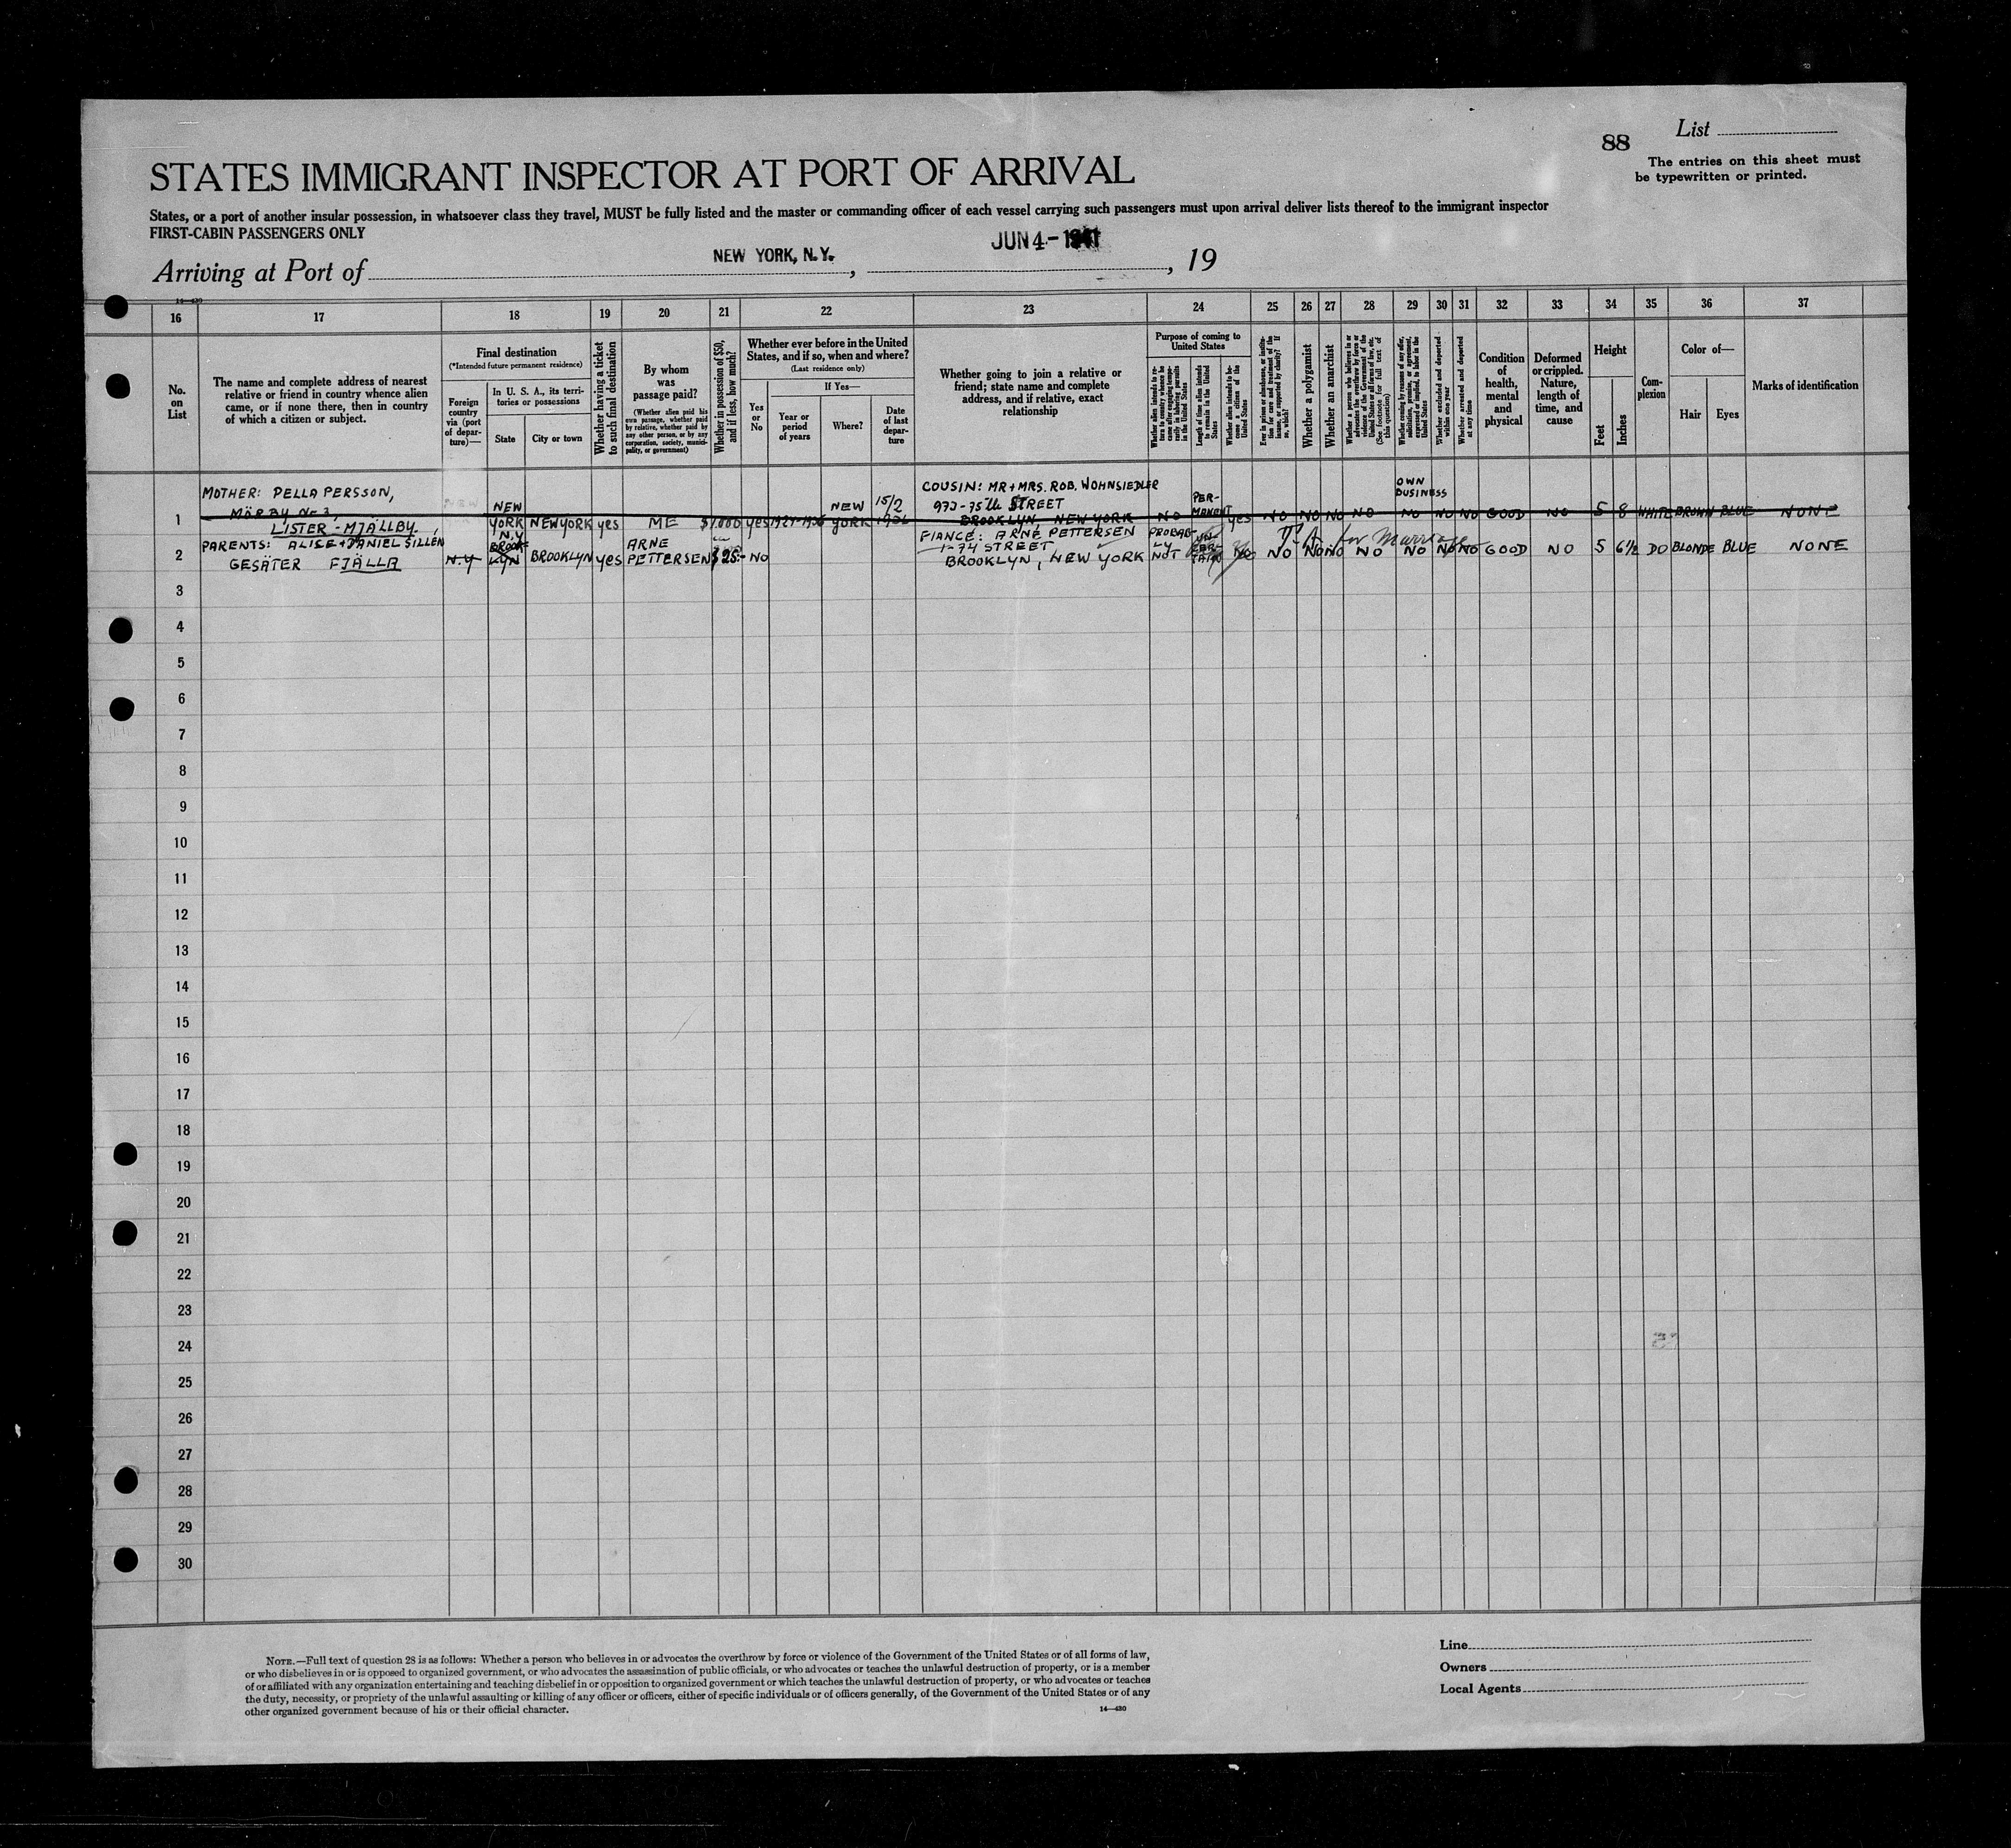 88
List
The entries on this sheet must
be typewritten or printed.
STATES IMMIGRANT INSPECTOR AT PORT OF ARRIVAL
States, or a port of another insular possession, in whatsoever class they travel, MUST be fully listed and the master or commanding officer of each vessel carrying such passengers must upon arrival deliver lists thereof to the immigrant inspector
FIRST-CABIN PASSENGERS ONLY
Arriving at Port of NEW YORK, N.Y. , JUN 4 - 1941 , 19
14—430
16 17 18 19 20 21 22 23 24 25 26 27 28 29 30 31 32 33 34 35 36 37
No.
on
List
The name and complete address of nearest
relative or friend in country whence alien
came, or if none there, then in country
of which a citizen or subject.
Final destination
(*Intended future permanent residence)
Foreign
country
via (port
of depar-
ture)—
In U. S. A., its terri-
tories or possessions
State
City or town
Whether having a ticket
to such final destination
By whom
was
passage paid?
(Whether alien paid his
own passage, whether paid
by relative, whether paid by
any other person, or by any
corporation, society, munici-
pality, or government)
Whether in possession of $50,
and if less, how much?
Whether ever before in the United
States, and if so, when and where?
(Last residence only)
Yes
or
No
If Yes—
Year or
period
of years
Where?
Date
of last
depar-
ture
Whether going to join a relative or
friend; state name and complete
address, and if relative, exact
relationship
Purpose of coming to
United States
Whether alien intends to re-
turn to country whence he
came after engaging tempo-
rarily in laboring pursuits
in the United States
Length of time alien intends
to remain in the United
States
Whether alien intends to be-
come a citizen of the
United States
Ever in prison or almshouse, or institu-
tion for care and treatment of the
insane, or supported by charity? If
so, which?
Whether a polygamist
Whether an anarchist
Whether a person who believes in or
advocates the overthrow by force or
violence of the Government of the
United States or all forms of law, etc.
(See footnote for full text of
this question)
Whether coming by reason of any offer,
solicitation, promise, or agreement,
expressed or implied, to labor in the
United States
Whether excluded and deported
within one year
Whether arrested and deported
at any time
Condition
of
health,
mental
and
physical
Deformed
or crippled.
Nature,
length of
time, and
cause
Height
Feet
Inches
Com-
plexion
Color of—
Hair
Eyes
Marks of identification
MOTHER: PELLA PERSSON,
MÖRBY Nr 3,
LISTER-MJÄLLBY,
1 NEW YORK NEW YORK yes ME $1,000 yes NEW YORK 15/2
COUSIN: MR + MRS. ROB. WOHNSIEDLER
973-75th STREET
BROOKLYN, NEW YORK
NO PER-MANENT yes NO NO NO NO OWN BUSINESS NO NO NO GOOD NO 5 8 WHITE BROWN BLUE NONE
PARENTS: ALICE + DANIEL SILLÉN
GESÄTER FJÄLLA
2 N.Y N.Y BROOKLYN BROOKLYN yes ARNE PETTERSEN $25.- NO
FIANCE: ARNE PETTERSEN
1-74 STREET
BROOKLYN, NEW YORK
PROBAB-LY NOT NO NO NO NO NO NO NO GOOD NO 5 6½ DO BLONDE BLUE NONE
for Marriage
3
4
5
6
7
8
9
10
11
12
13
14
15
16
17
18
19
20
21
22
23
24
25
26
27
28
29
30
NOTE.—Full text of question 28 is as follows: Whether a person who believes in or advocates the overthrow by force or violence of the Government of the United States or of all forms of law,
or who disbelieves in or is opposed to organized government, or who advocates the assassination of public officials, or who advocates or teaches the unlawful destruction of property, or is a member
of or affiliated with any organization entertaining and teaching disbelief in or opposition to organized government or which teaches the unlawful destruction of property, or who advocates or teaches
the duty, necessity, or propriety of the unlawful assaulting or killing of any officer or officers, either of specific individuals or of officers generally, of the Government of the United States or of any
other organized government because of his or their official character.
14—430
Line
Owners
Local Agents